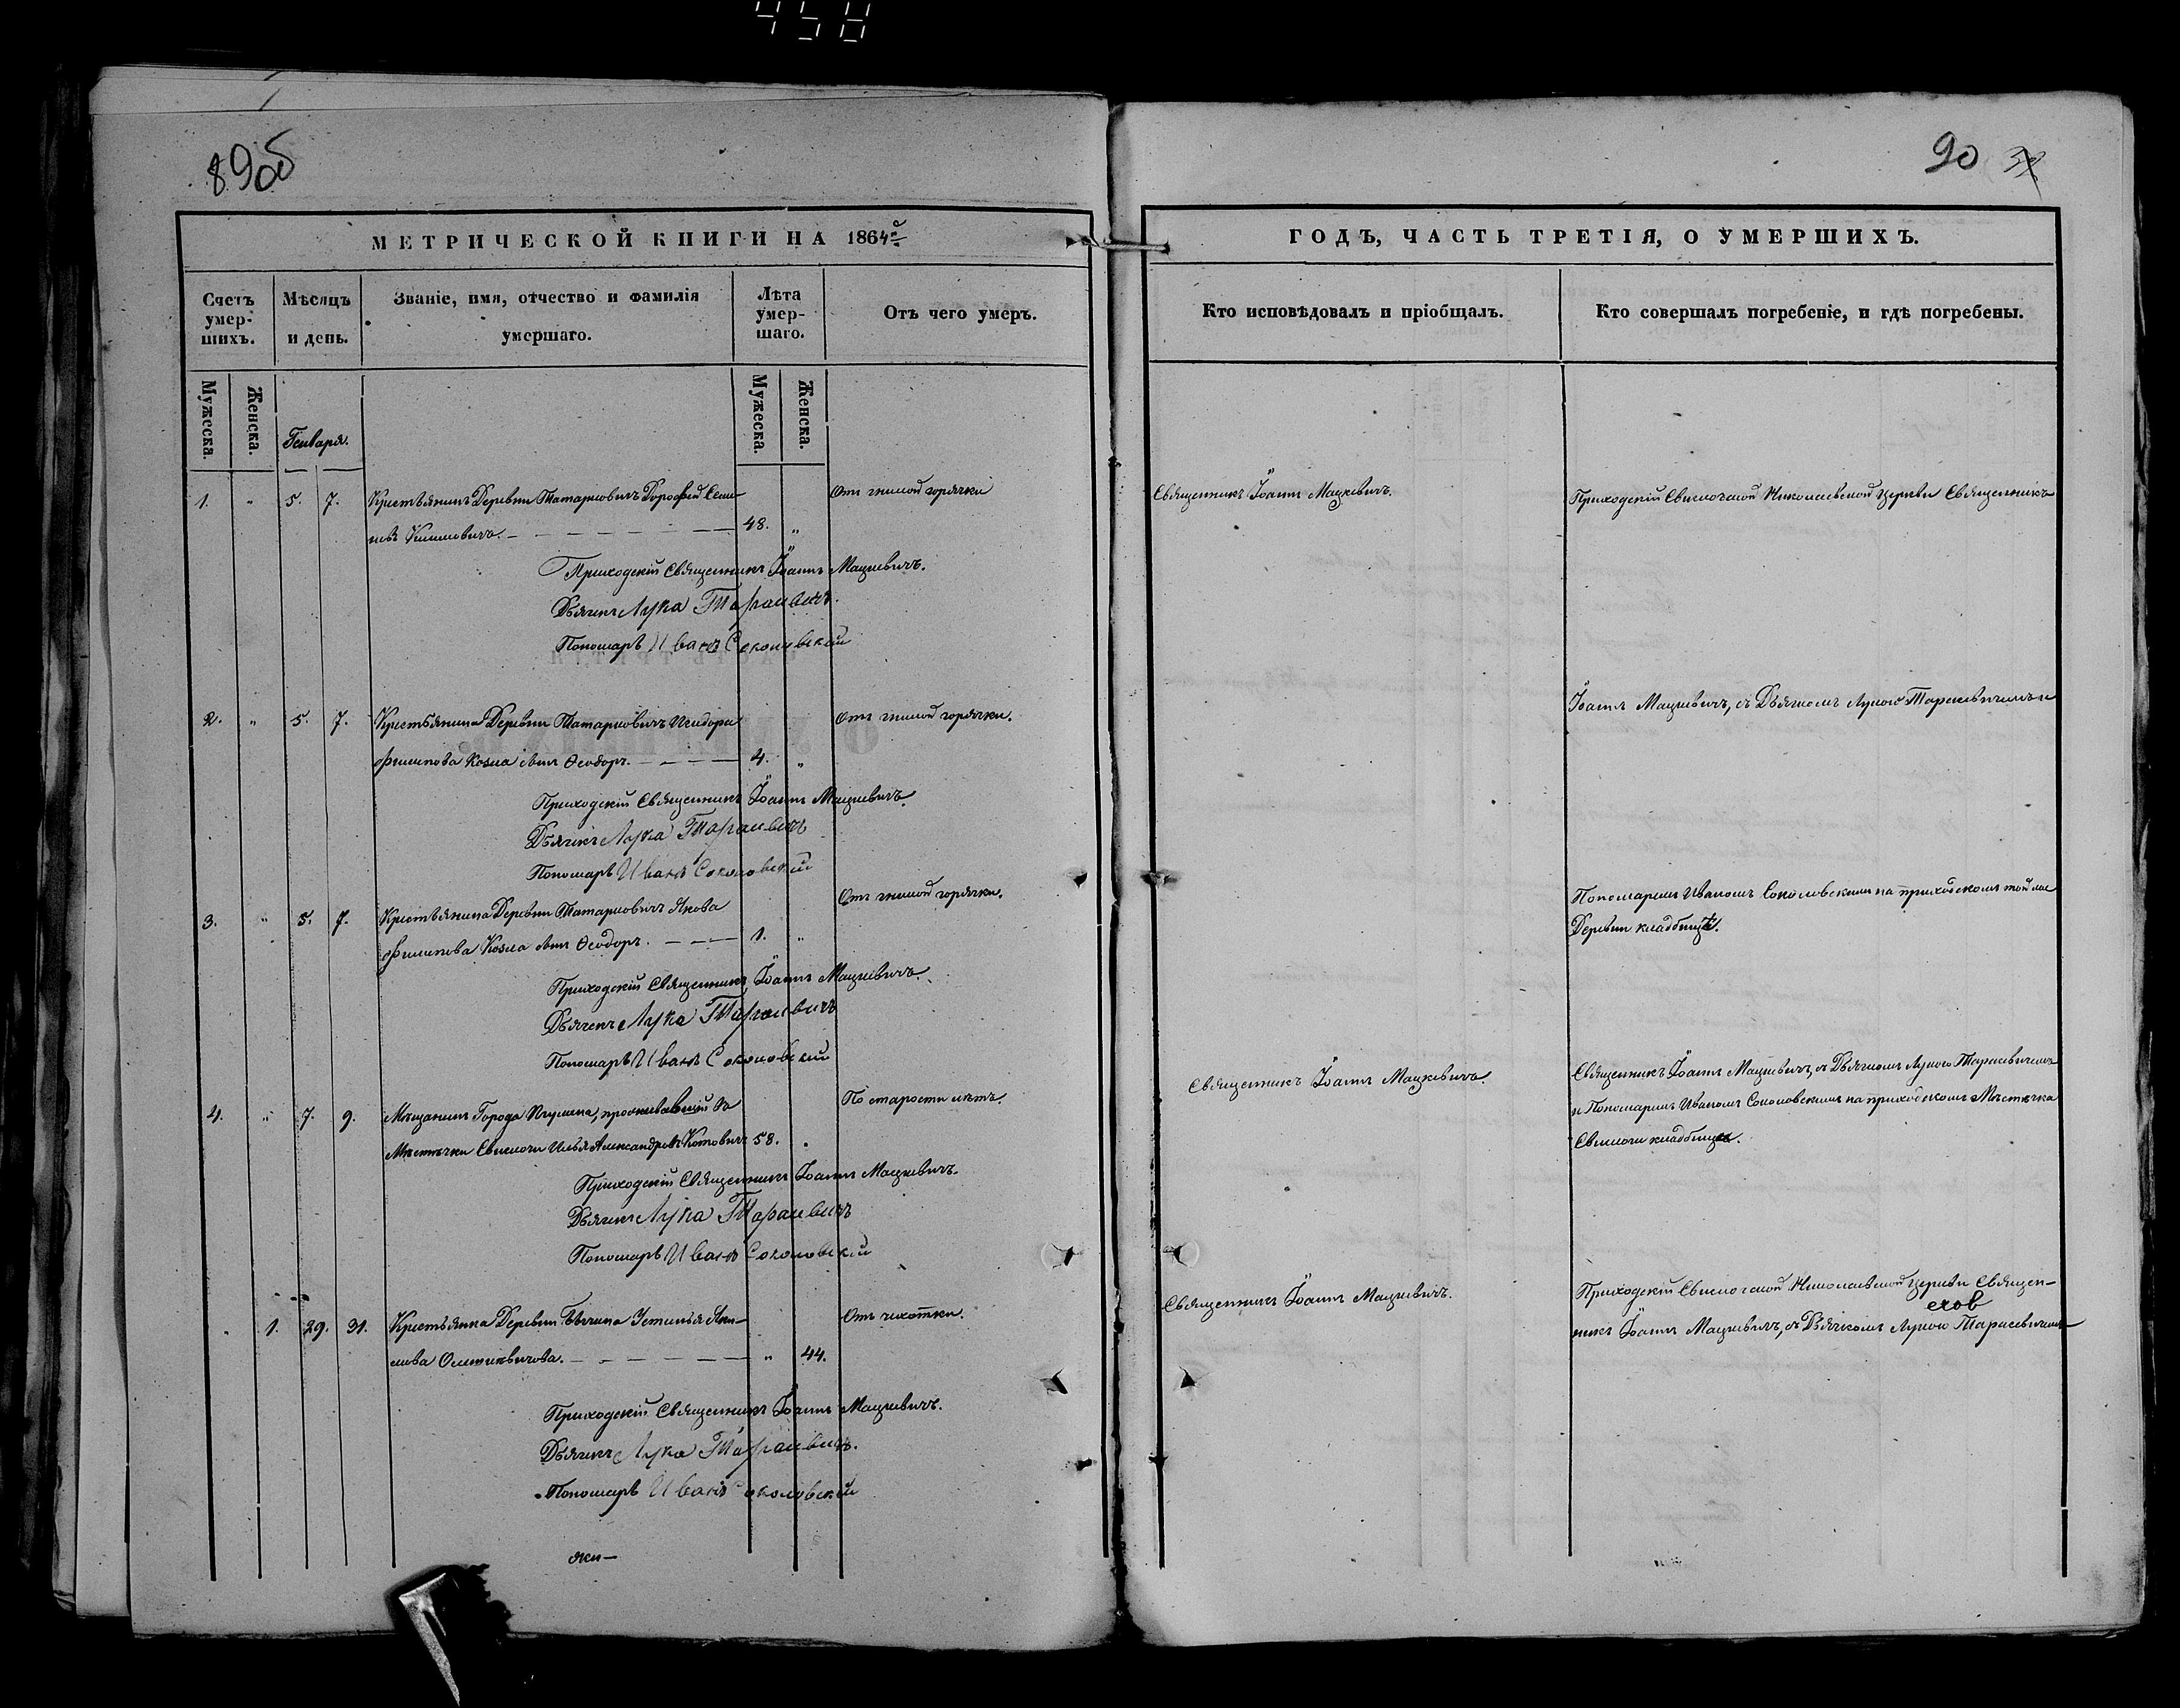 458
89об
90
МЕТРИЧЕСКОЙ КНИГИ НА 1864й
Счетъ умер-
шихъ.
Мѣсяцъ
и день.
Званіе, имя, отчество и фамилія
умершаго.
Лѣта
умер-
шаго.
Отъ чего умеръ.
Мужеска.
Женска.
Генваря.
Мужеска.
Женска.
1. " 5. 7. Крестьянинъ Деревни Татарковичъ Дорофей Семи-
48. "
Отъ гнилой горячки
Приходскій Священникъ Іоаннъ Мацкевичъ.
Дьячекъ Лука Тарасевичъ.
Пономарь Иванъ Соколовскій
2. " 5. 7. Крестьянина Деревни Татарковичъ Исидора
Филипова Козла сынъ Ѳеодоръ. 4. "
Отъ гнилой горячки.
Приходскій Священникъ Іоаннъ Мацкевичъ.
Дьячекъ Лука Тарасевичъ
Пономарь Иванъ Соколовскій
3. " 5. 7. Крестьянина Деревни Татарковичъ Якова
Филипова Козла сынъ Ѳеодоръ. 1. "
Отъ гнилой горячки.
Приходскій Священникъ Іоаннъ Мацкевичъ.
Дьячекъ Лука Тарасевичъ
Пономарь Иванъ Соколовскій
4. " 7. 9. Мѣщанинъ Города Игумена, проживавшій въ
Мѣстечки Свислочи Илья Александровъ Котовичъ 58.
По старости лѣтъ.
Приходскій Священникъ Іоаннъ Мацкевичъ.
Дьячекъ Лука Тарасевичъ
Пономарь Иванъ Соколовскій
" 1. 29. 31. Крестьянка Деревни Устинья Яки-
мова " 44.
Отъ чихотки.
Приходскій Священникъ Іоаннъ Мацкевичъ.
Дьячекъ Лука Тарасевичъ.
Пономарь Иванъ Соколовскій
яки-
ГОДЪ, ЧАСТЬ ТРЕТІЯ, О УМЕРШИХЪ.
Кто исповѣдовалъ и пріобщалъ.
Кто совершалъ погребеніе, и гдѣ погребены.
Священникъ Іоаннъ Мацкевичъ.
Приходскій Свислочской Николаевской Церкви Священникъ
Іоаннъ Мацкевичъ, съ Дьячкомъ Лукою Тарасевичемъ и
Пономаремъ Иваномъ Соколовскимъ на приходскомъ той же
Деревни кладбищѣ.
Священникъ Іоаннъ Мацкевичъ.
Священникъ Іоаннъ Мацкевичъ, съ Дьячкомъ Лукою Тарасевичемъ
и Пономаремъ Иваномъ Соколовскимъ на приходскомъ Мѣстечка
Свислочи кладбищѣ.
Священникъ Іоаннъ Мацкевичъ.
Приходскій Свислочской Николаевской Церкви Священ-
никъ Іоаннъ Мацкевичъ, съ Дьячкомъ Лукою Тарасевичемъ